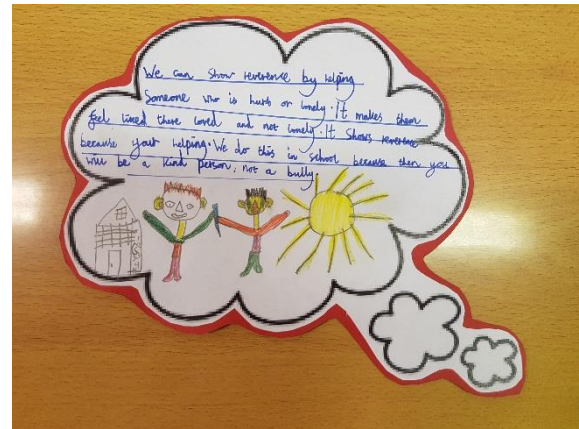 We can show reverence by helping
Someone who is hurts or lonely. It makes them
feel liked there loved and not lonely. It shows reverence
because your helping. We do this in school because then you
will be a kind person, not a bully.